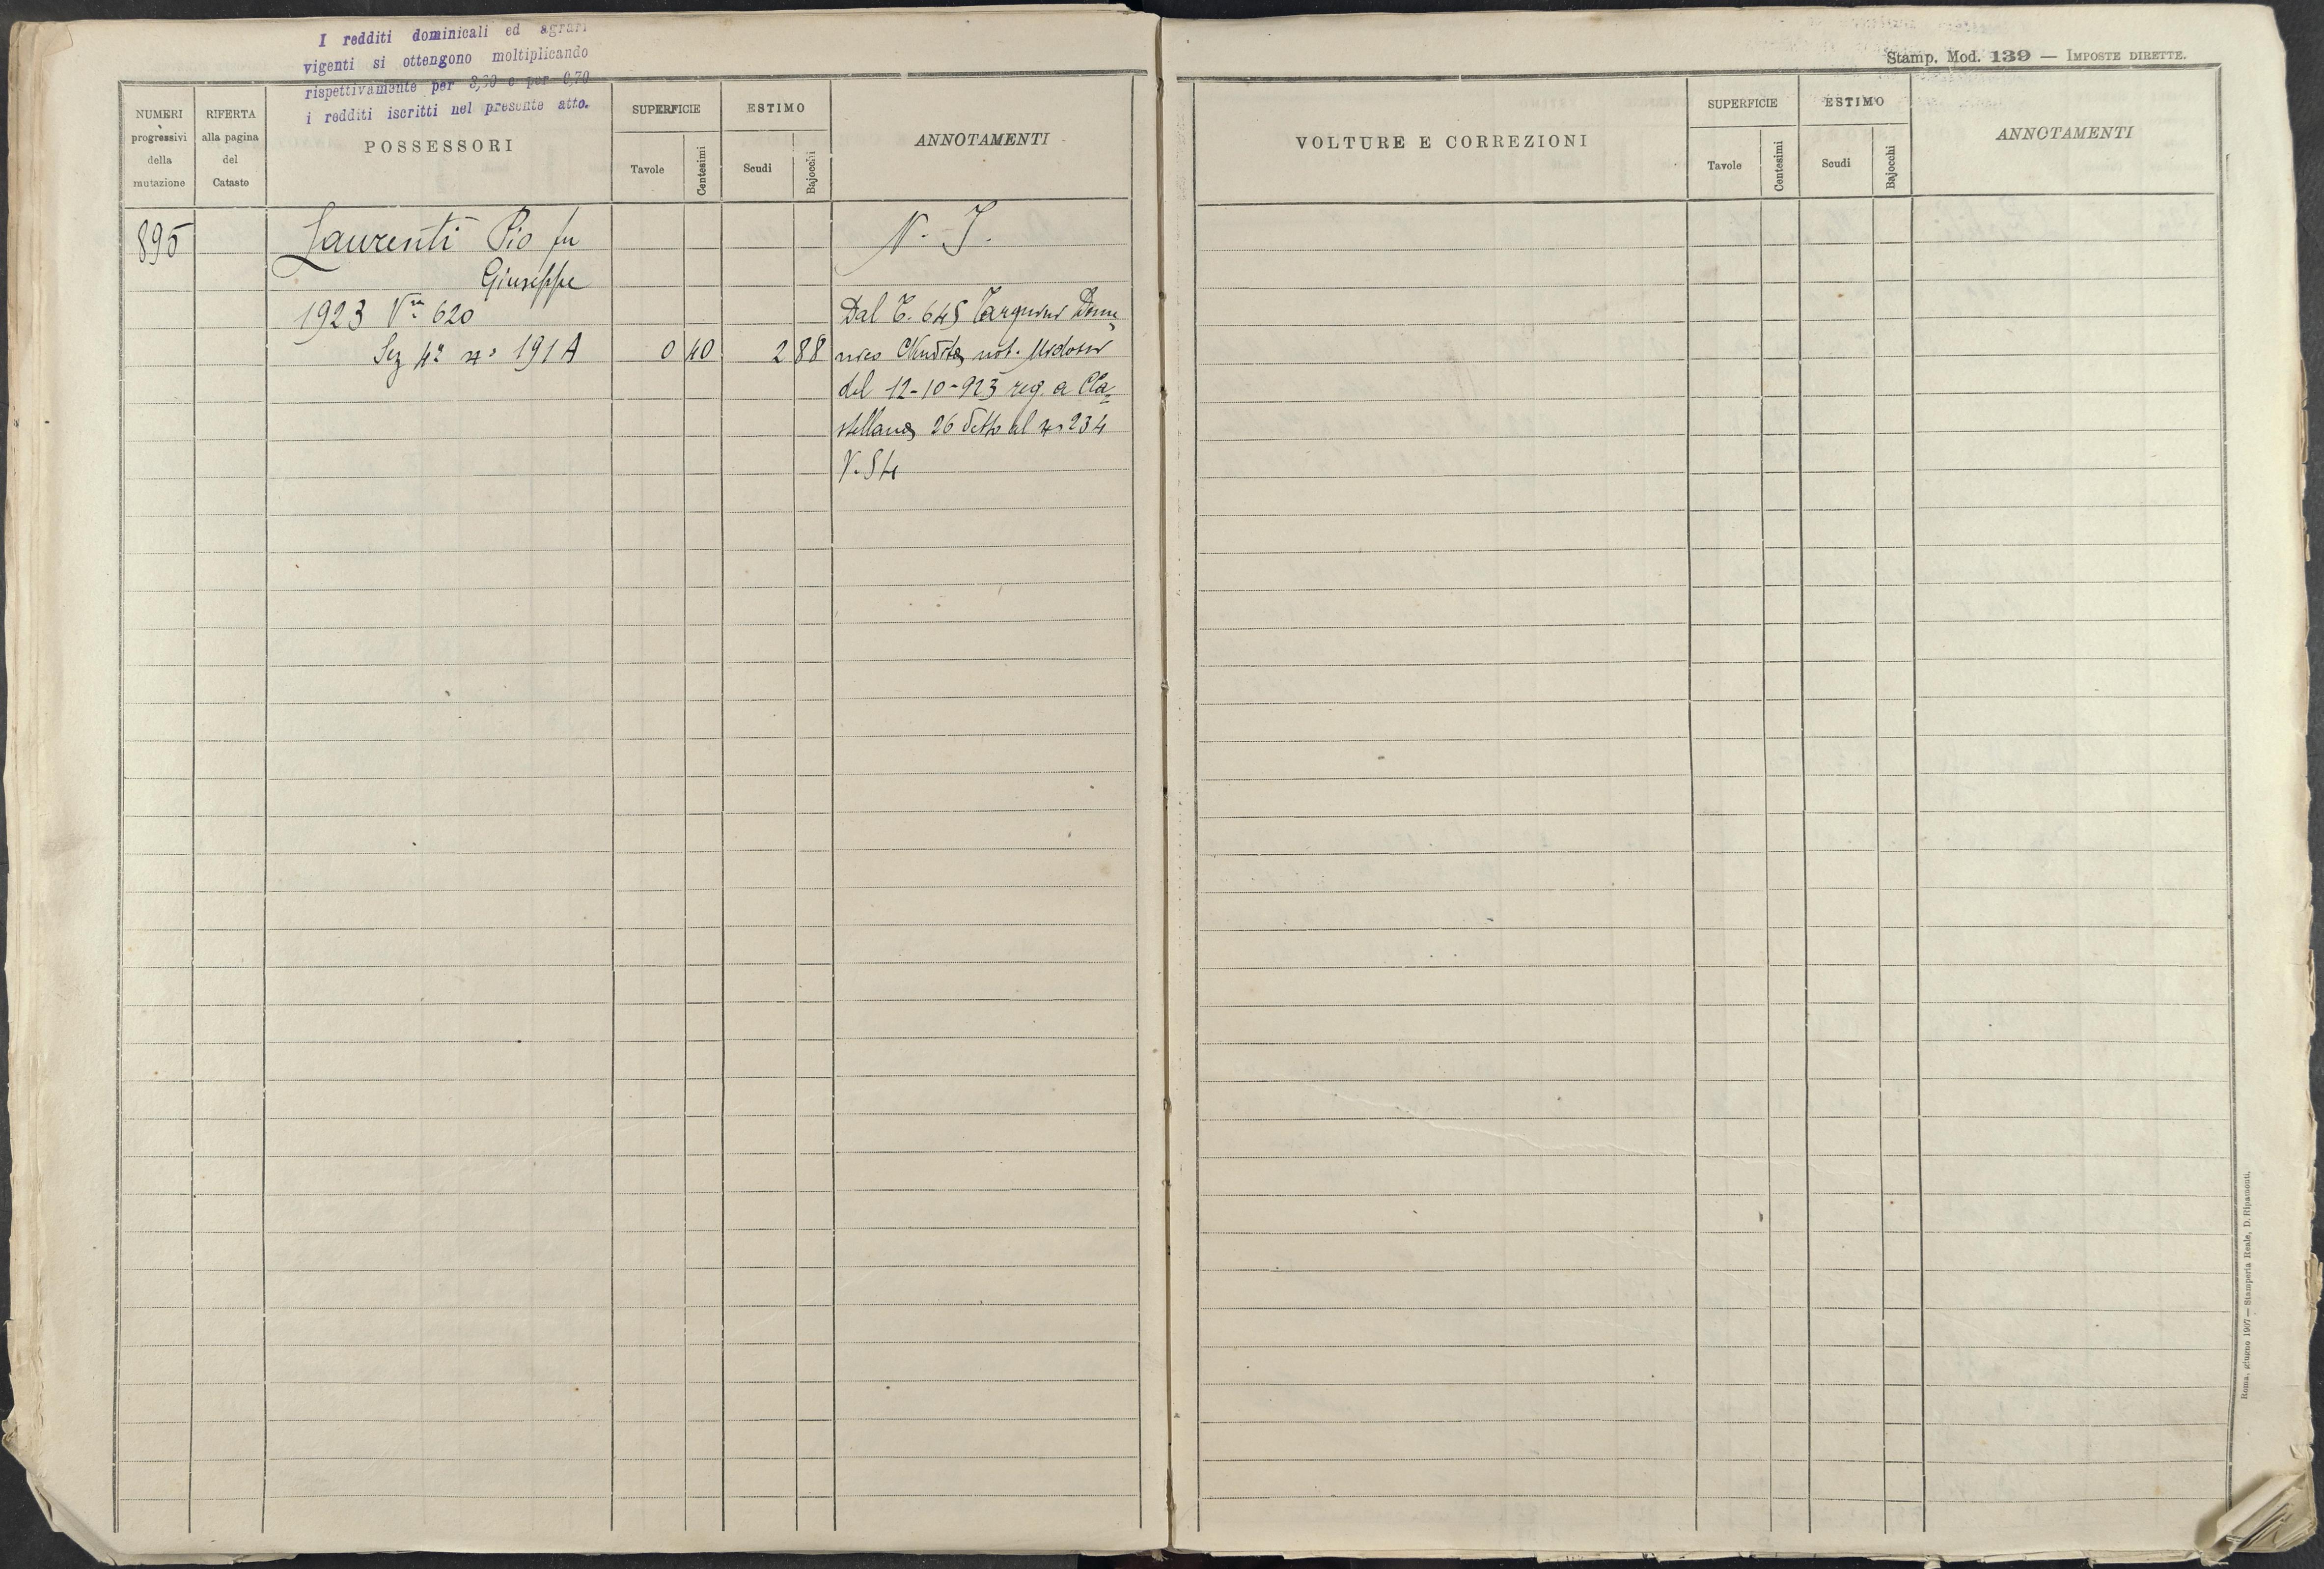 I redditi dominicali ed agrari
vigenti si ottengono moltiplicando
rispettivamente per 3,30 e per 0,70
i redditi iscritti nel presente atto.
NUMERI
progressivi
della
mutazione
RIFERTA
alla pagina
del
Catasto
POSSESSORI
SUPERFICIE
Tavole
Centesimi
ESTIMO
Scudi
Bajocchi
ANNOTAMENTI
895
Laurenti Pio fu
Giuseppe
1923 Vra 620
Sez 4a no 191 A
0 40 2 88
N. I.
Dal C. 645 Tarquini Dome
nico
del 12-10-923 reg. a Ca-
stellana 26 detto al no 234
V. St
Stamp. Mod. 139 — IMPOSTE DIRETTE.
VOLTURE E CORREZIONI
SUPERFICIE
Tavole
Centesimi
ESTIMO
Scudi
Bajocchi
ANNOTAMENTI
Roma, giugno 1907 — Stamperia Reale, D. Ripamonti.